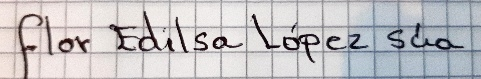 Flor Edilsa López sua